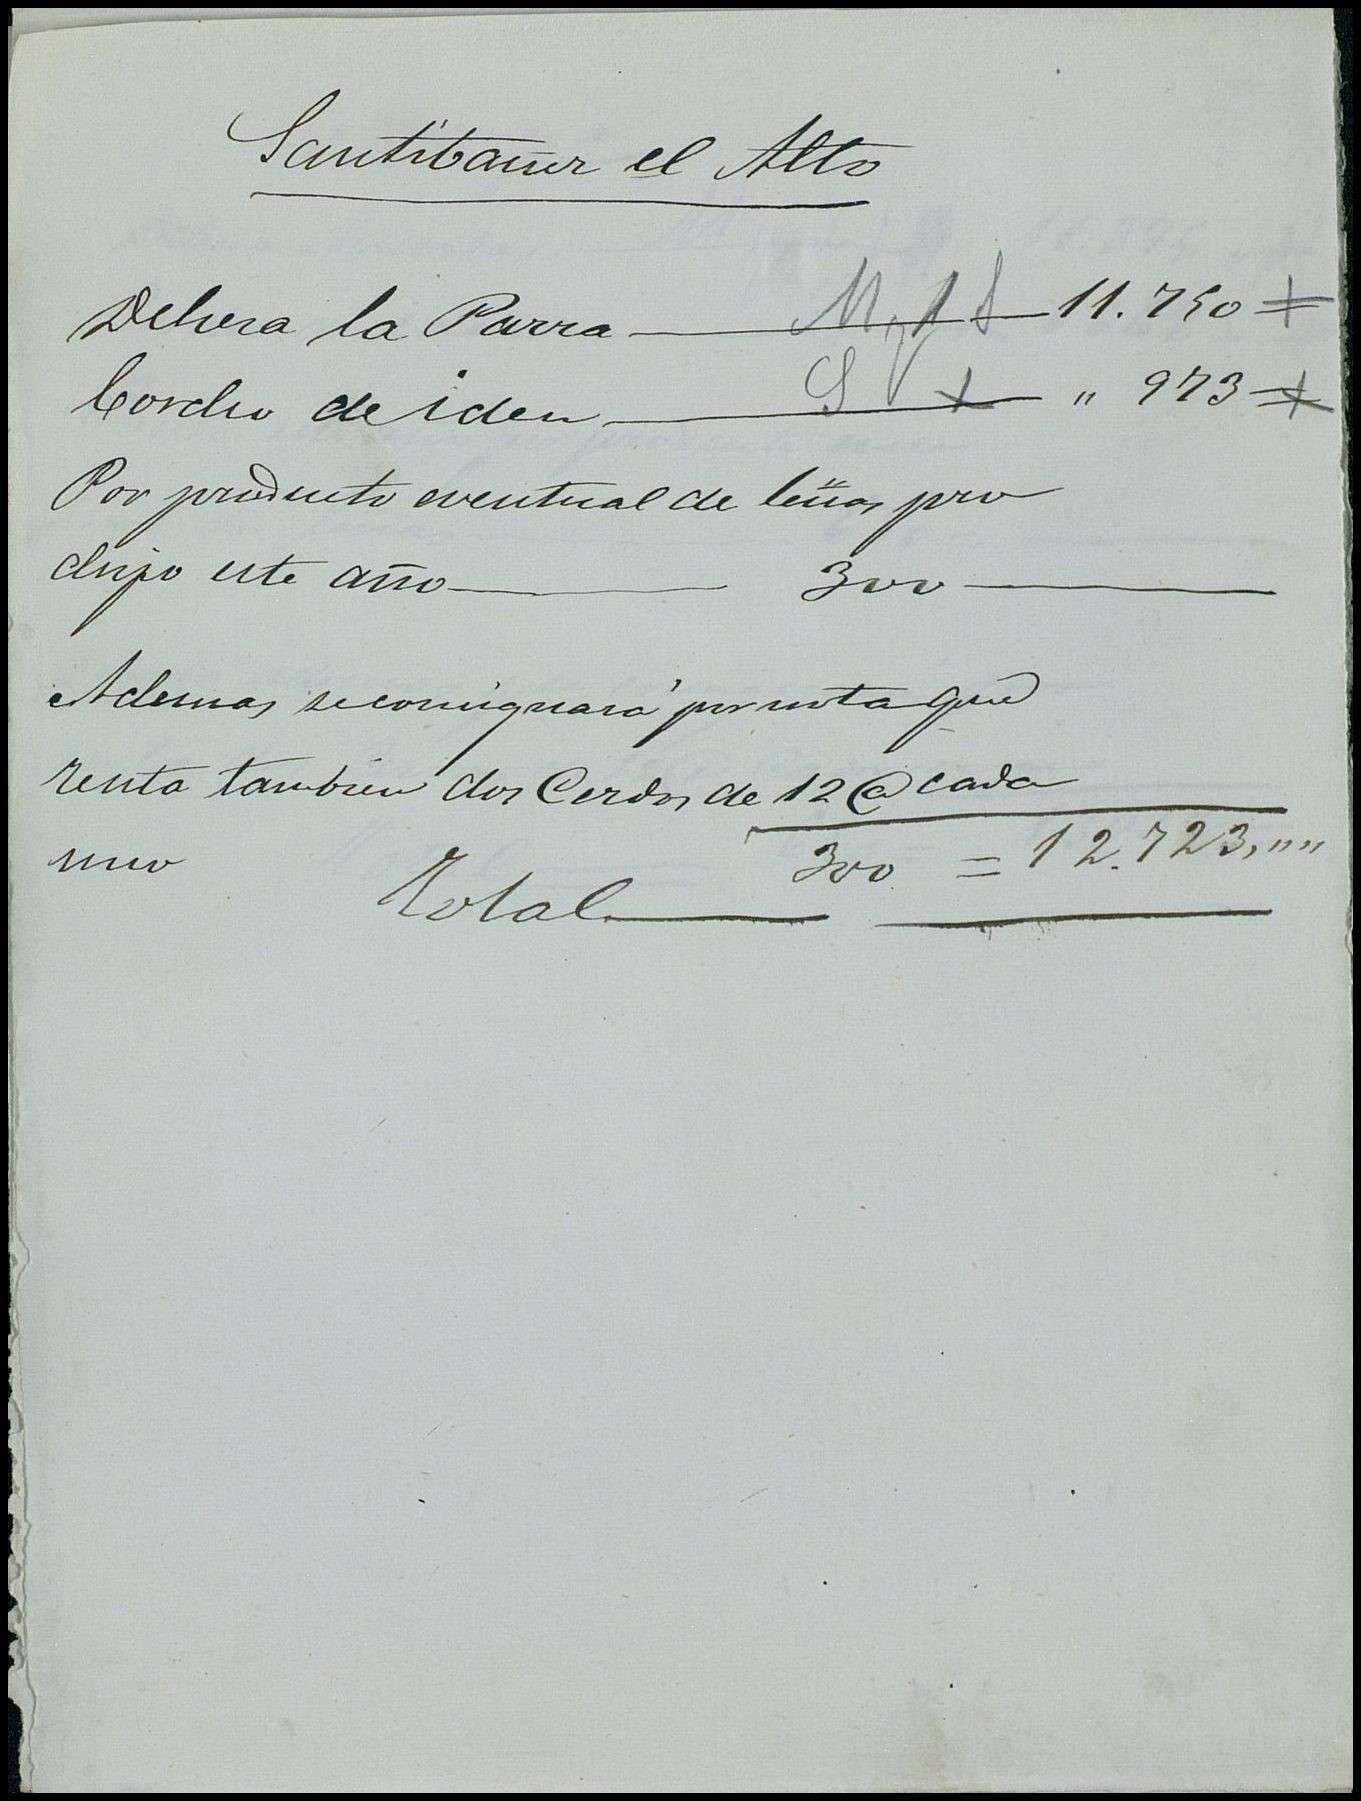 Santibañez el Alto
Dehesa la Parra 11.750
Corcho de iden " 973
Por producto eventual de leñas pro
dujo este año 300
Ademas se consignará por nota que
renta tambien dos Cerdos de 12 @ cada
uno
Total 300 = 12.723,""